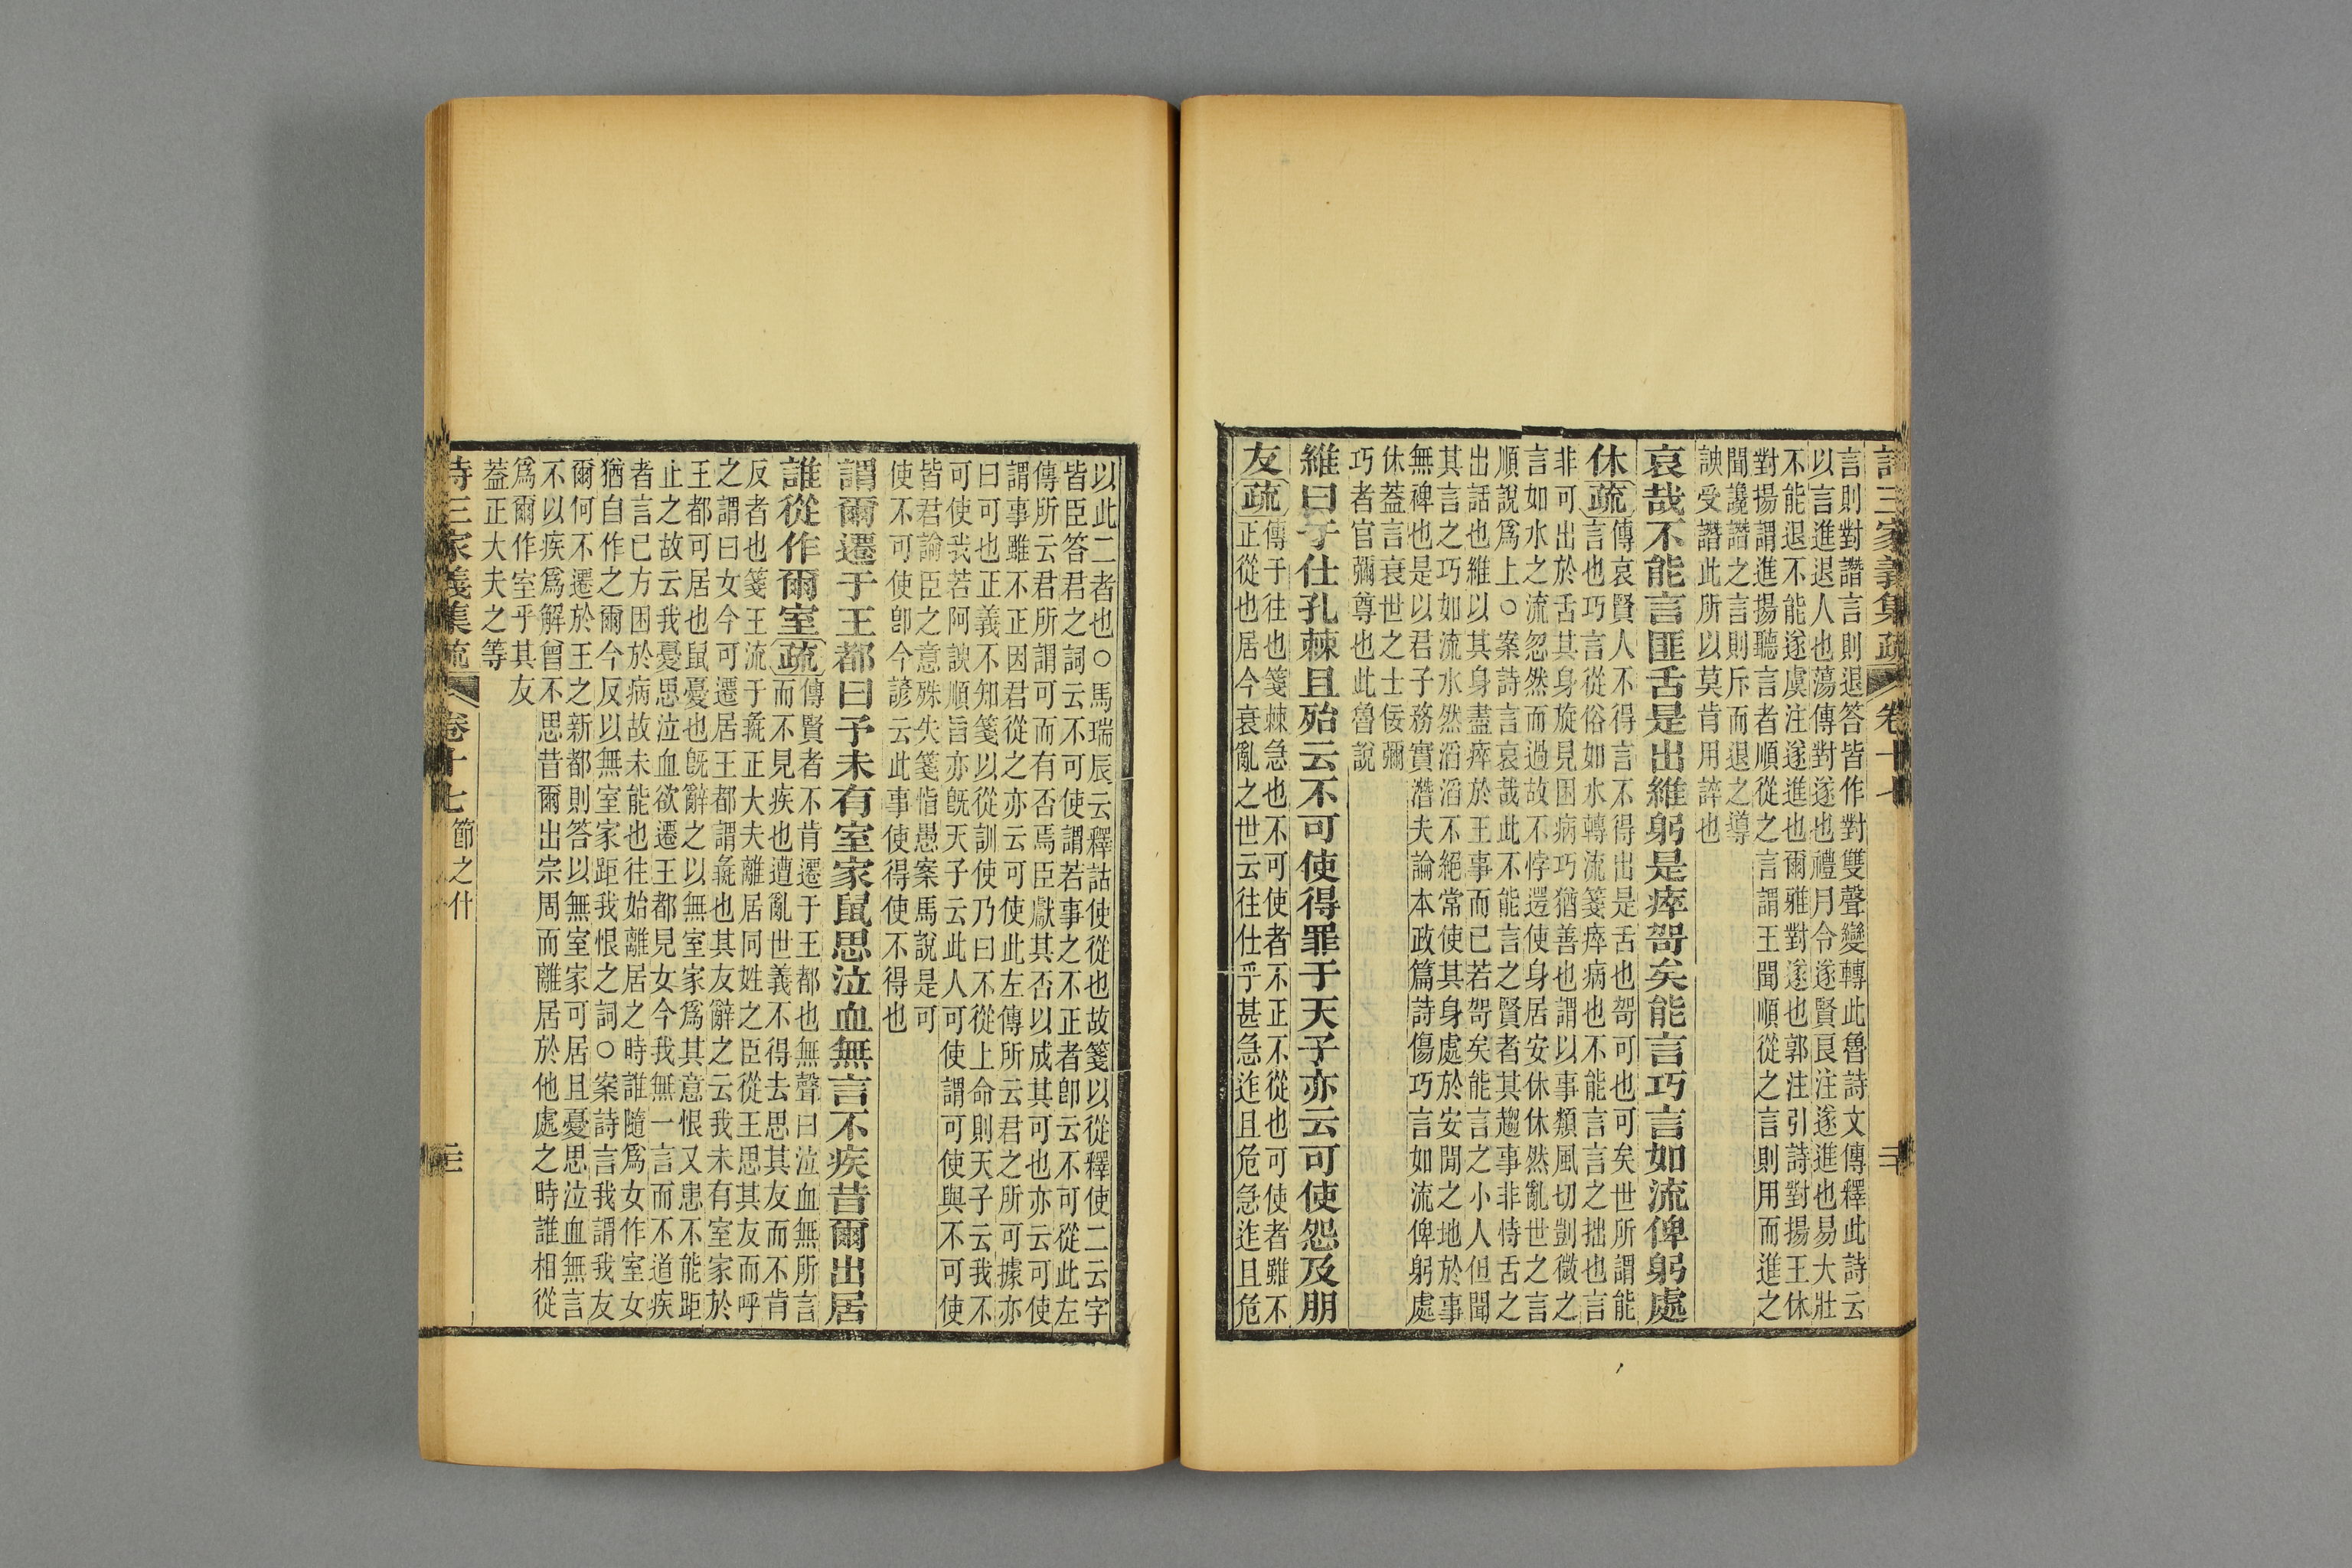 詩三家義集疏 卷十七
言則對譖言則退答皆作對雙聲變轉此魯詩文傳釋此詩云
以言進退人也蕩傳對遂也禮月令遂賢良注遂進也易大壯
不能退不能遂虞注遂進也爾雅對遂也郭注引詩對揚王休
對揚謂進揚聽言者順從之言謂王聞順從之言則用而進之
聞讒譖之言則斥而退之導
諛受譖此所以莫肯用誶也
哀哉不能言匪舌是出維躬是瘁哿矣能言巧言如流俾躬處
休疏
傳哀賢人不得言不得出是舌也哿可也可矣世所謂能
言也巧言從俗如水轉流箋瘁病也不能言言之拙也言
非可出於舌其身旋見困病巧猶善也謂以事類風切剴微之
言如水之流忽然而過故不悖遌使身居安休休然亂世之言
順說爲上○案詩言哀哉此不能言之賢者其趨事非恃舌之
出話也維以其身盡瘁於王事而已若哿矣能言之小人但聞
其言之巧如流水然滔滔不絕常使其身處於安閒之地於事
無裨也是以君子務實潛夫論本政篇詩傷巧言如流俾躬處
休蓋言衰世之士佞彌
巧者官彌尊也此魯說
維曰于仕孔棘且殆云不可使得罪于天子亦云可使怨及朋
友疏
傳于往也箋棘急也不可使者不正不從也可使者雖不
正從也居今衰亂之世云往仕乎甚急迮且危急迮且危
以此二者也○馬瑞辰云釋詁使從也故箋以從釋使二云字
皆臣答君之詞云不可使謂若事之不正者卽云不可從此左
傳所云君所謂可而有否焉臣獻其否以成其可也亦云可使
謂事雖不正因君從之亦云可使此左傳所云君之所可據亦
曰可也正義不知箋以從訓使乃曰不從上命則天子云我不
可使我若阿諛順旨亦旣天子云此人可使謂可使與不可使
皆君論臣之意殊失箋恉愚案馬說是可
使不可使卽今諺云此事使得使不得也
謂爾遷于王都曰予未有室家鼠思泣血無言不疾昔爾出居
誰從作爾室疏
傳賢者不肯遷于王都也無聲曰泣血無所言
而不見疾也遭亂世義不得去思其友而不肯
反者也箋王流于彘正大夫離居同姓之臣從王思其友而呼
之謂曰女今可遷居王都謂彘也其友辭之云我未有室家於
王都可居也鼠憂也旣辭之以無室家爲其意恨又患不能距
止之故云我憂思泣血欲遷王都見女今我無一言而不道疾
者言已方困於病故未能也往始離居之時誰隨爲女作室女
猶自作之爾今反以無室家距我恨之詞○案詩言我謂我友
爾何不遷於王之新都則答以無室家可居且憂思泣血無言
不以疾爲解曾不思昔爾出宗周而離居於他處之時誰相從
爲爾作室乎其友
蓋正大夫之等
詩三家義集疏 卷十七 節之什